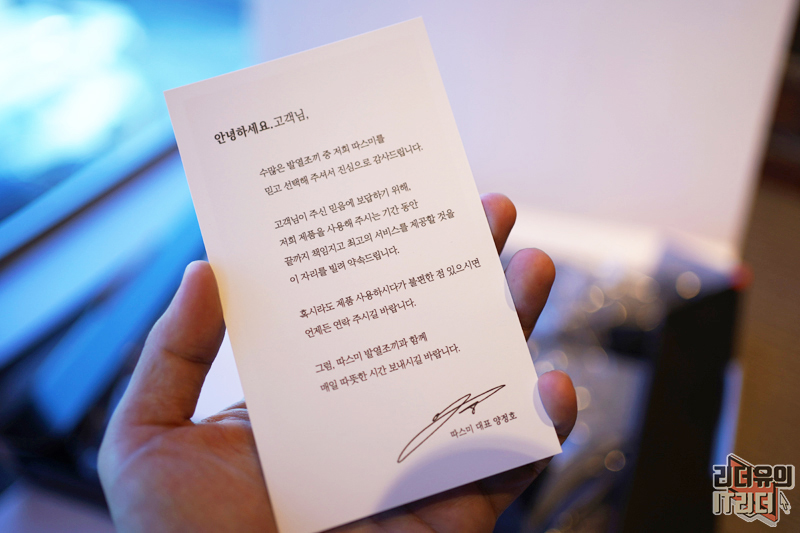 안녕하세요. 고객님,
수많은 발열조끼 중 저희 따스미를
믿고 선택해 주셔서 진심으로 감사드립니다.
고객님이 주신 믿음에 보답하기 위해,
저희 제품을 사용해 주시는 기간 동안
끝까지 책임지고 최고의 서비스를 제공할 것을
이 자리를 빌려 약속드립니다.
혹시라도 제품 사용하시다가 불편한 점 있으시면
언제든 연락 주시길 바랍니다.
그럼, 따스미 발열조끼와 함께
매일 따뜻한 시간 보내시길 바랍니다.
따스미 대표 양정호
리더유의
IT리더